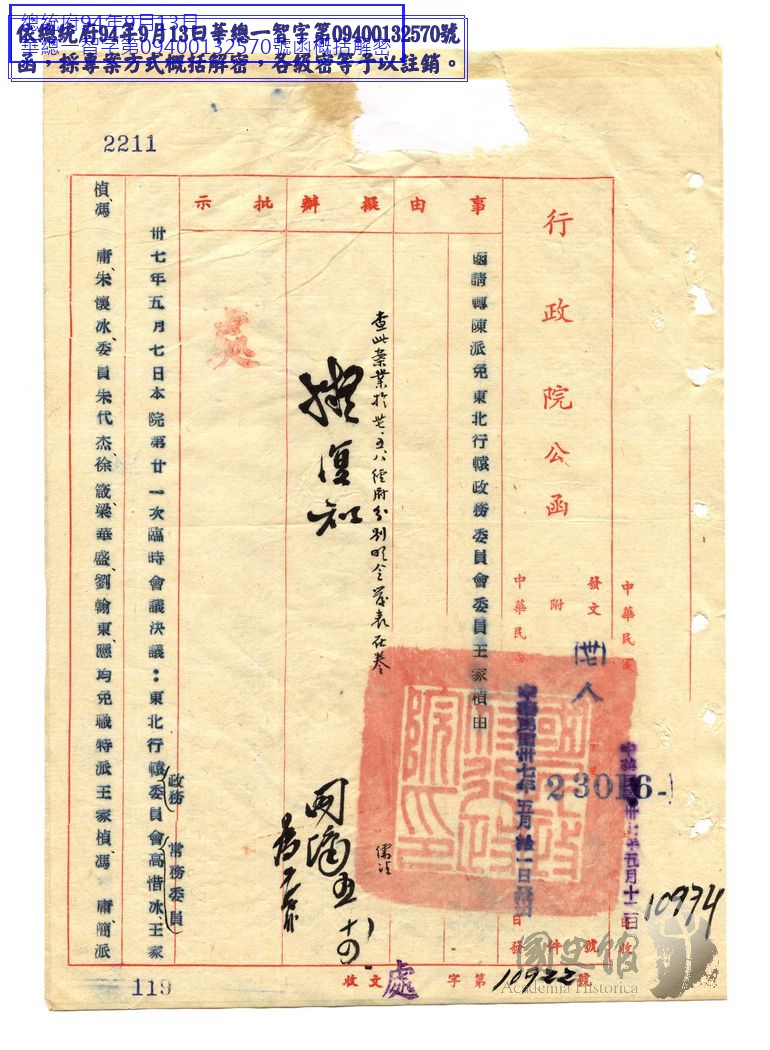 總統府94年9月13日
華總一智字第09400132570號函概括解密
依總統府94年9月13日華總一智字第09400132570號
函，採專案方式概括解密，各級密等予以註銷。
2211
行政院公函
中華民國卅七年五月十二日收
發文
附
件
號
(卅七)人
23016-1
中華民國卅七年五月拾一日
日發
10974
事由
函請轉陳派免東北行轅政務委員會委員王家楨由
擬辦
查此案業於卅七、五、八經府分別明令發表在卷
擬復知
批示
卅七年五月七日本院第廿一次臨時會議決議：東北行轅政務委員會常務委員高惜冰、王家
楨、馮庸、朱懷冰、委員朱代杰、徐箴、梁華盛、劉翰東、應均免職特派王家楨、馮庸、簡派
收文處字第10922號
119
國史館
Academia Historica